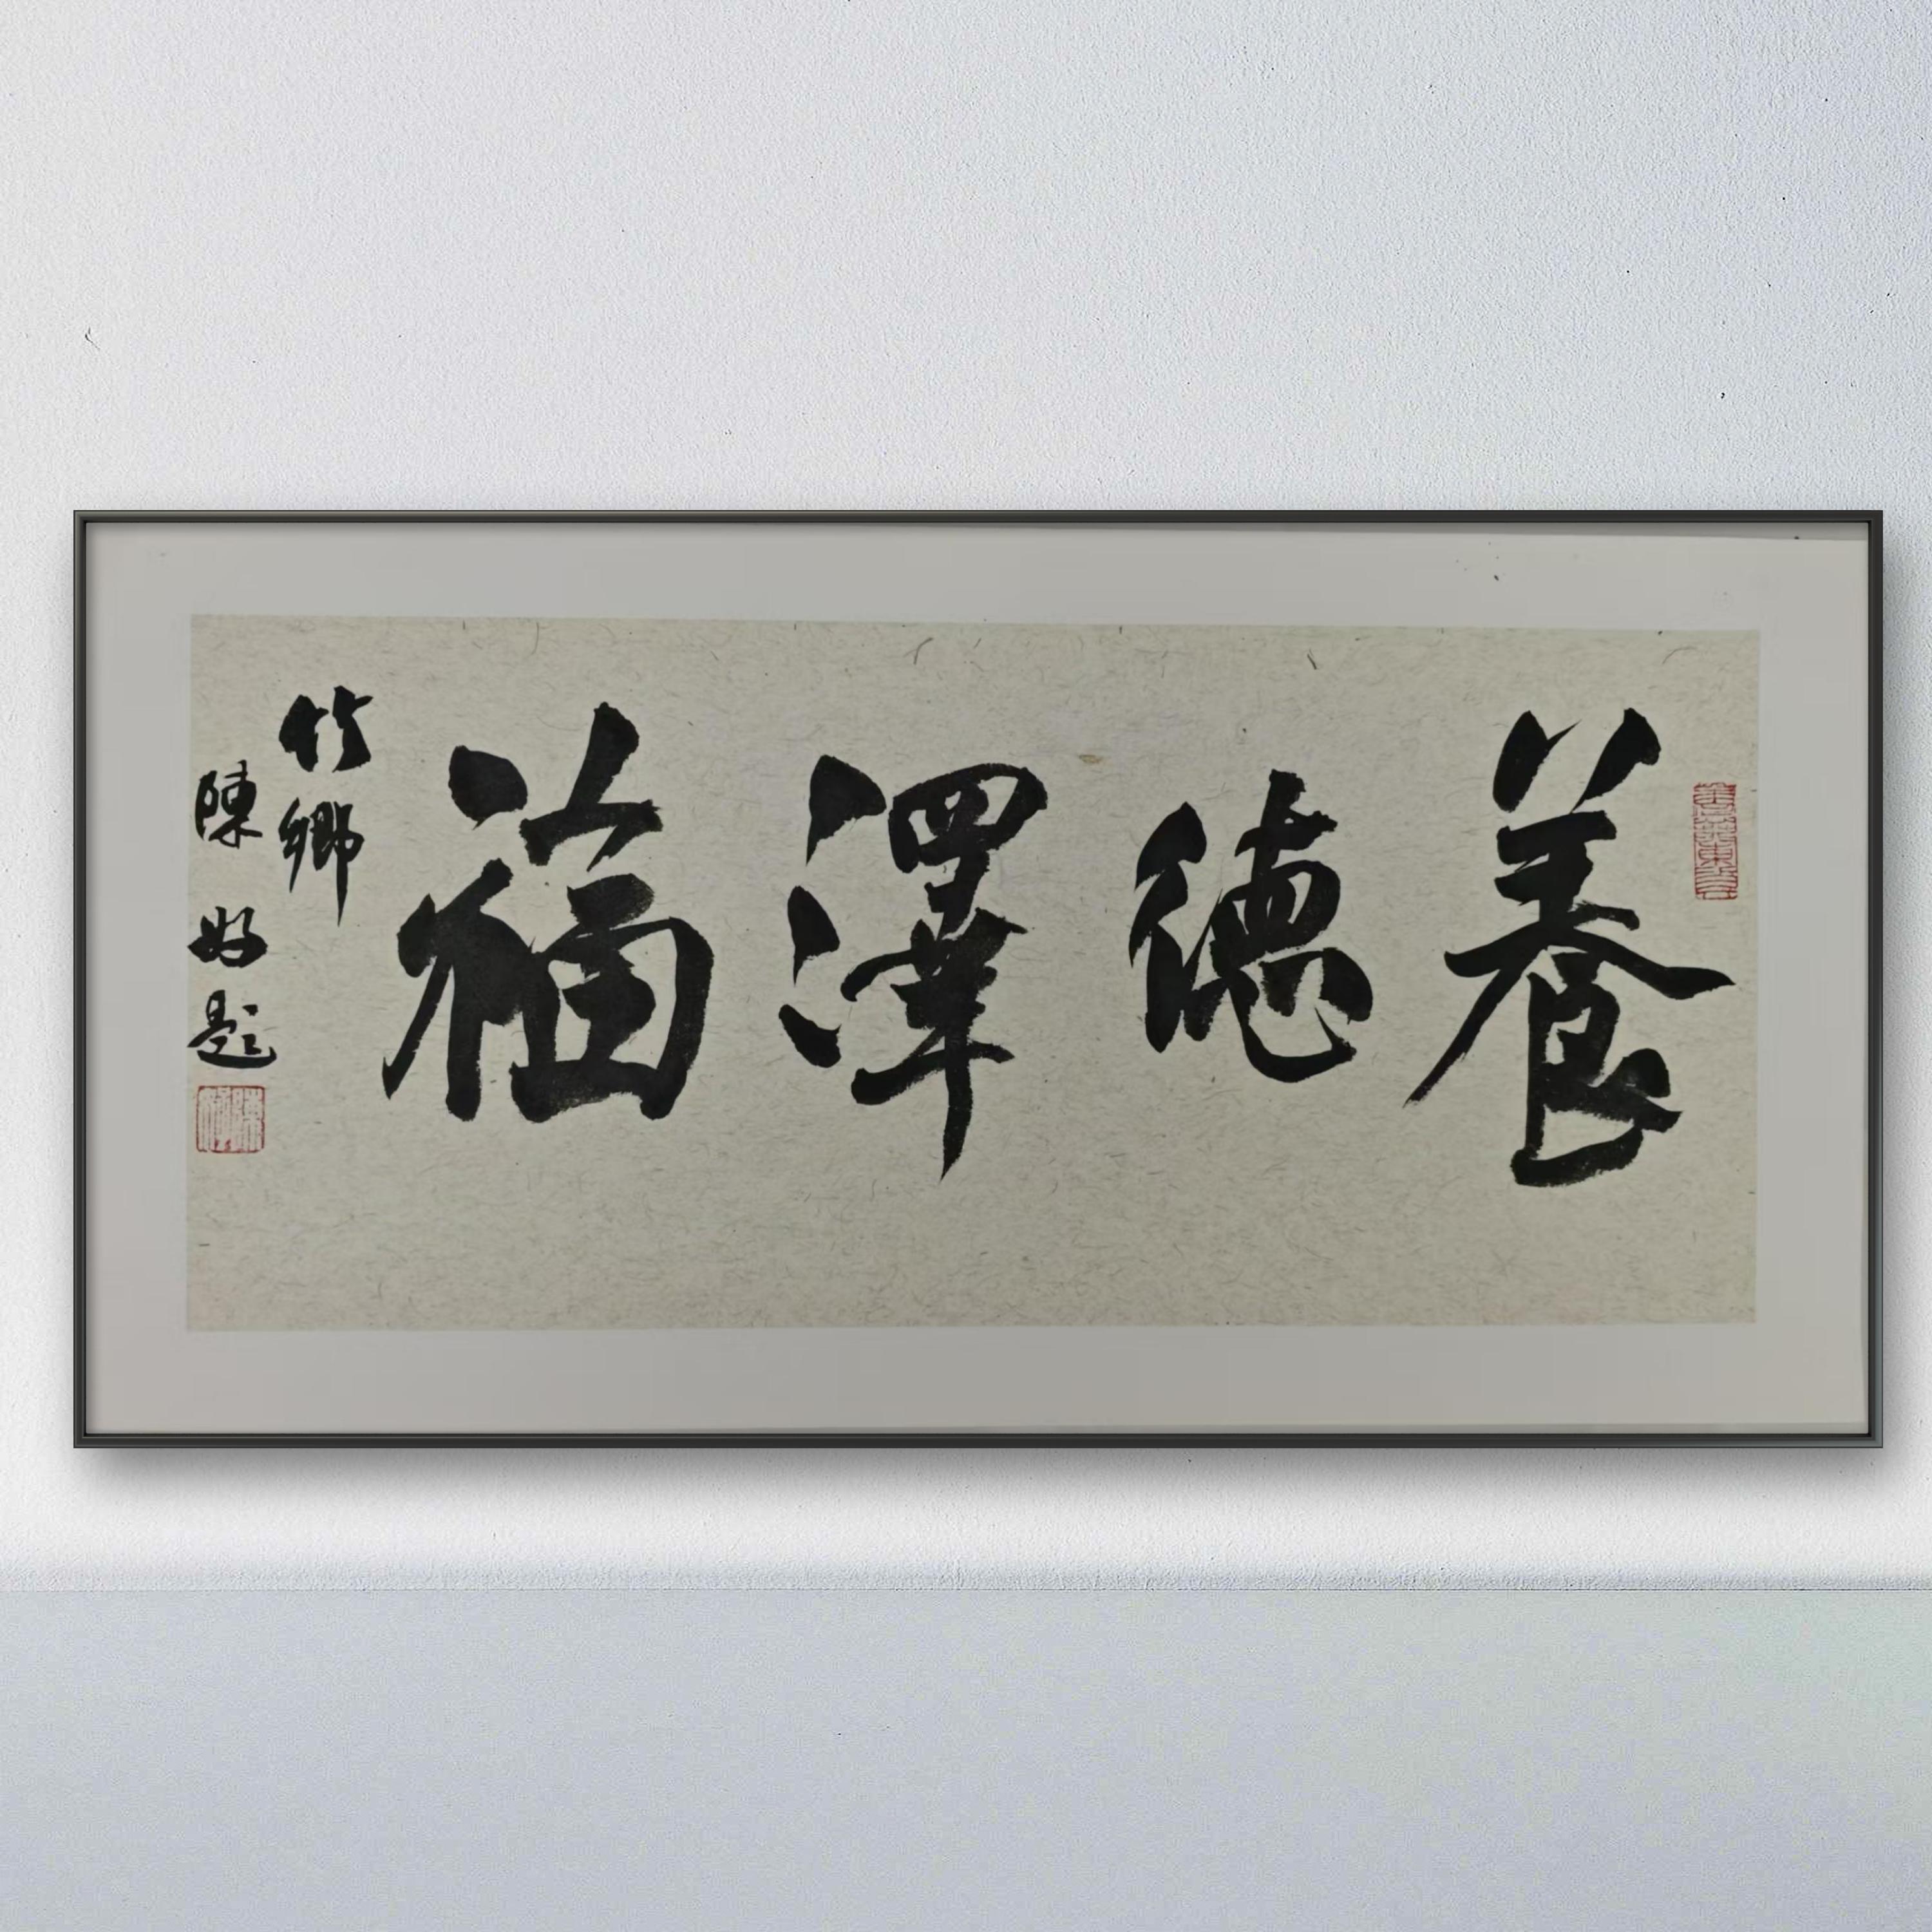 養德澤福
竹鄉
陳好題